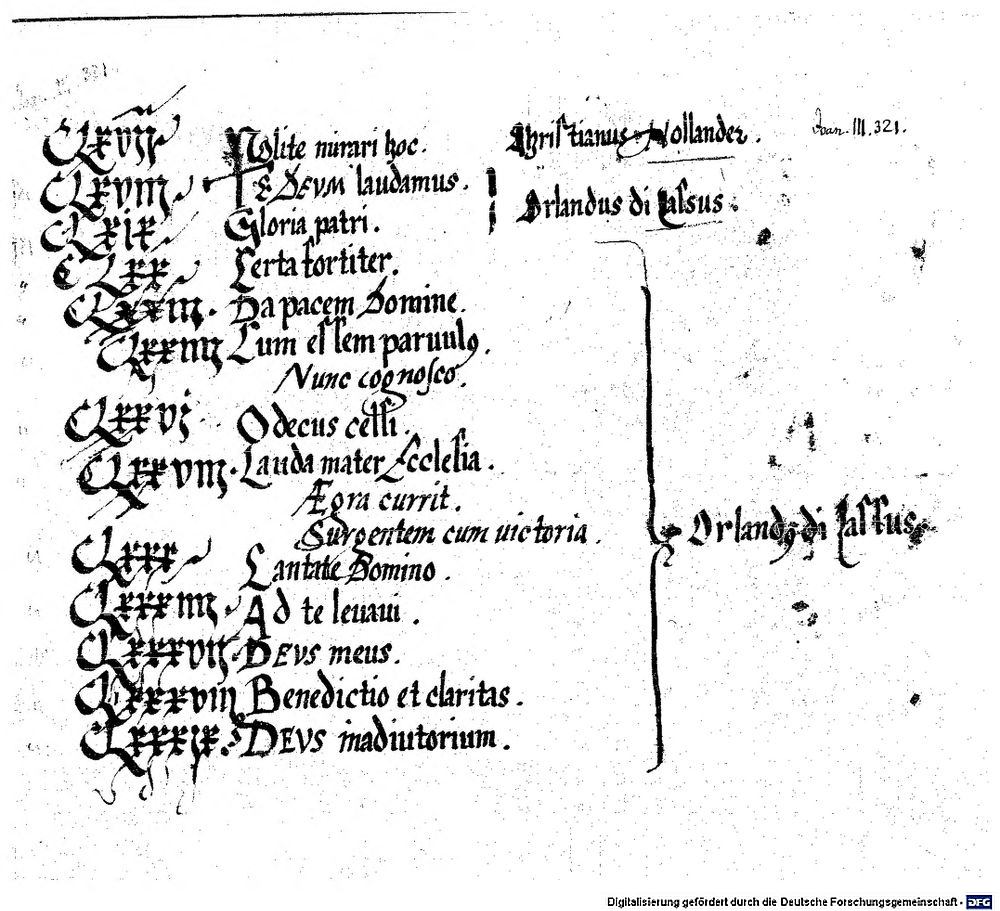 CLxvij Nolite mirari hoc. Christianus Hollander. Ioan. III. 321.
CLxviij. TE DEVM laudamus. Orlandus di Lassus.
CLxix. Gloria patri.
CLxx Certa fortiter.
CLxxiij. Da pacem Domine.
CLxxiiij Cum essem paruulꝰ.
Nunc cognosco.
CLxxvj O decus celsi.
CLxxviij. Lauda mater Ecclesia.
Ægra currit.
Surgentem cum victoria.
CLxxx Cantate Domino. Orlandꝰ di Lassus.
CLxxxiiij Ad te leuaui.
CLxxxvij. DEVS meus.
CLxxxviij Benedictio et claritas.
CLxxxix. DEVS in adiutorium.
Digitalisierung gefördert durch die Deutsche Forschungsgemeinschaft - DFG